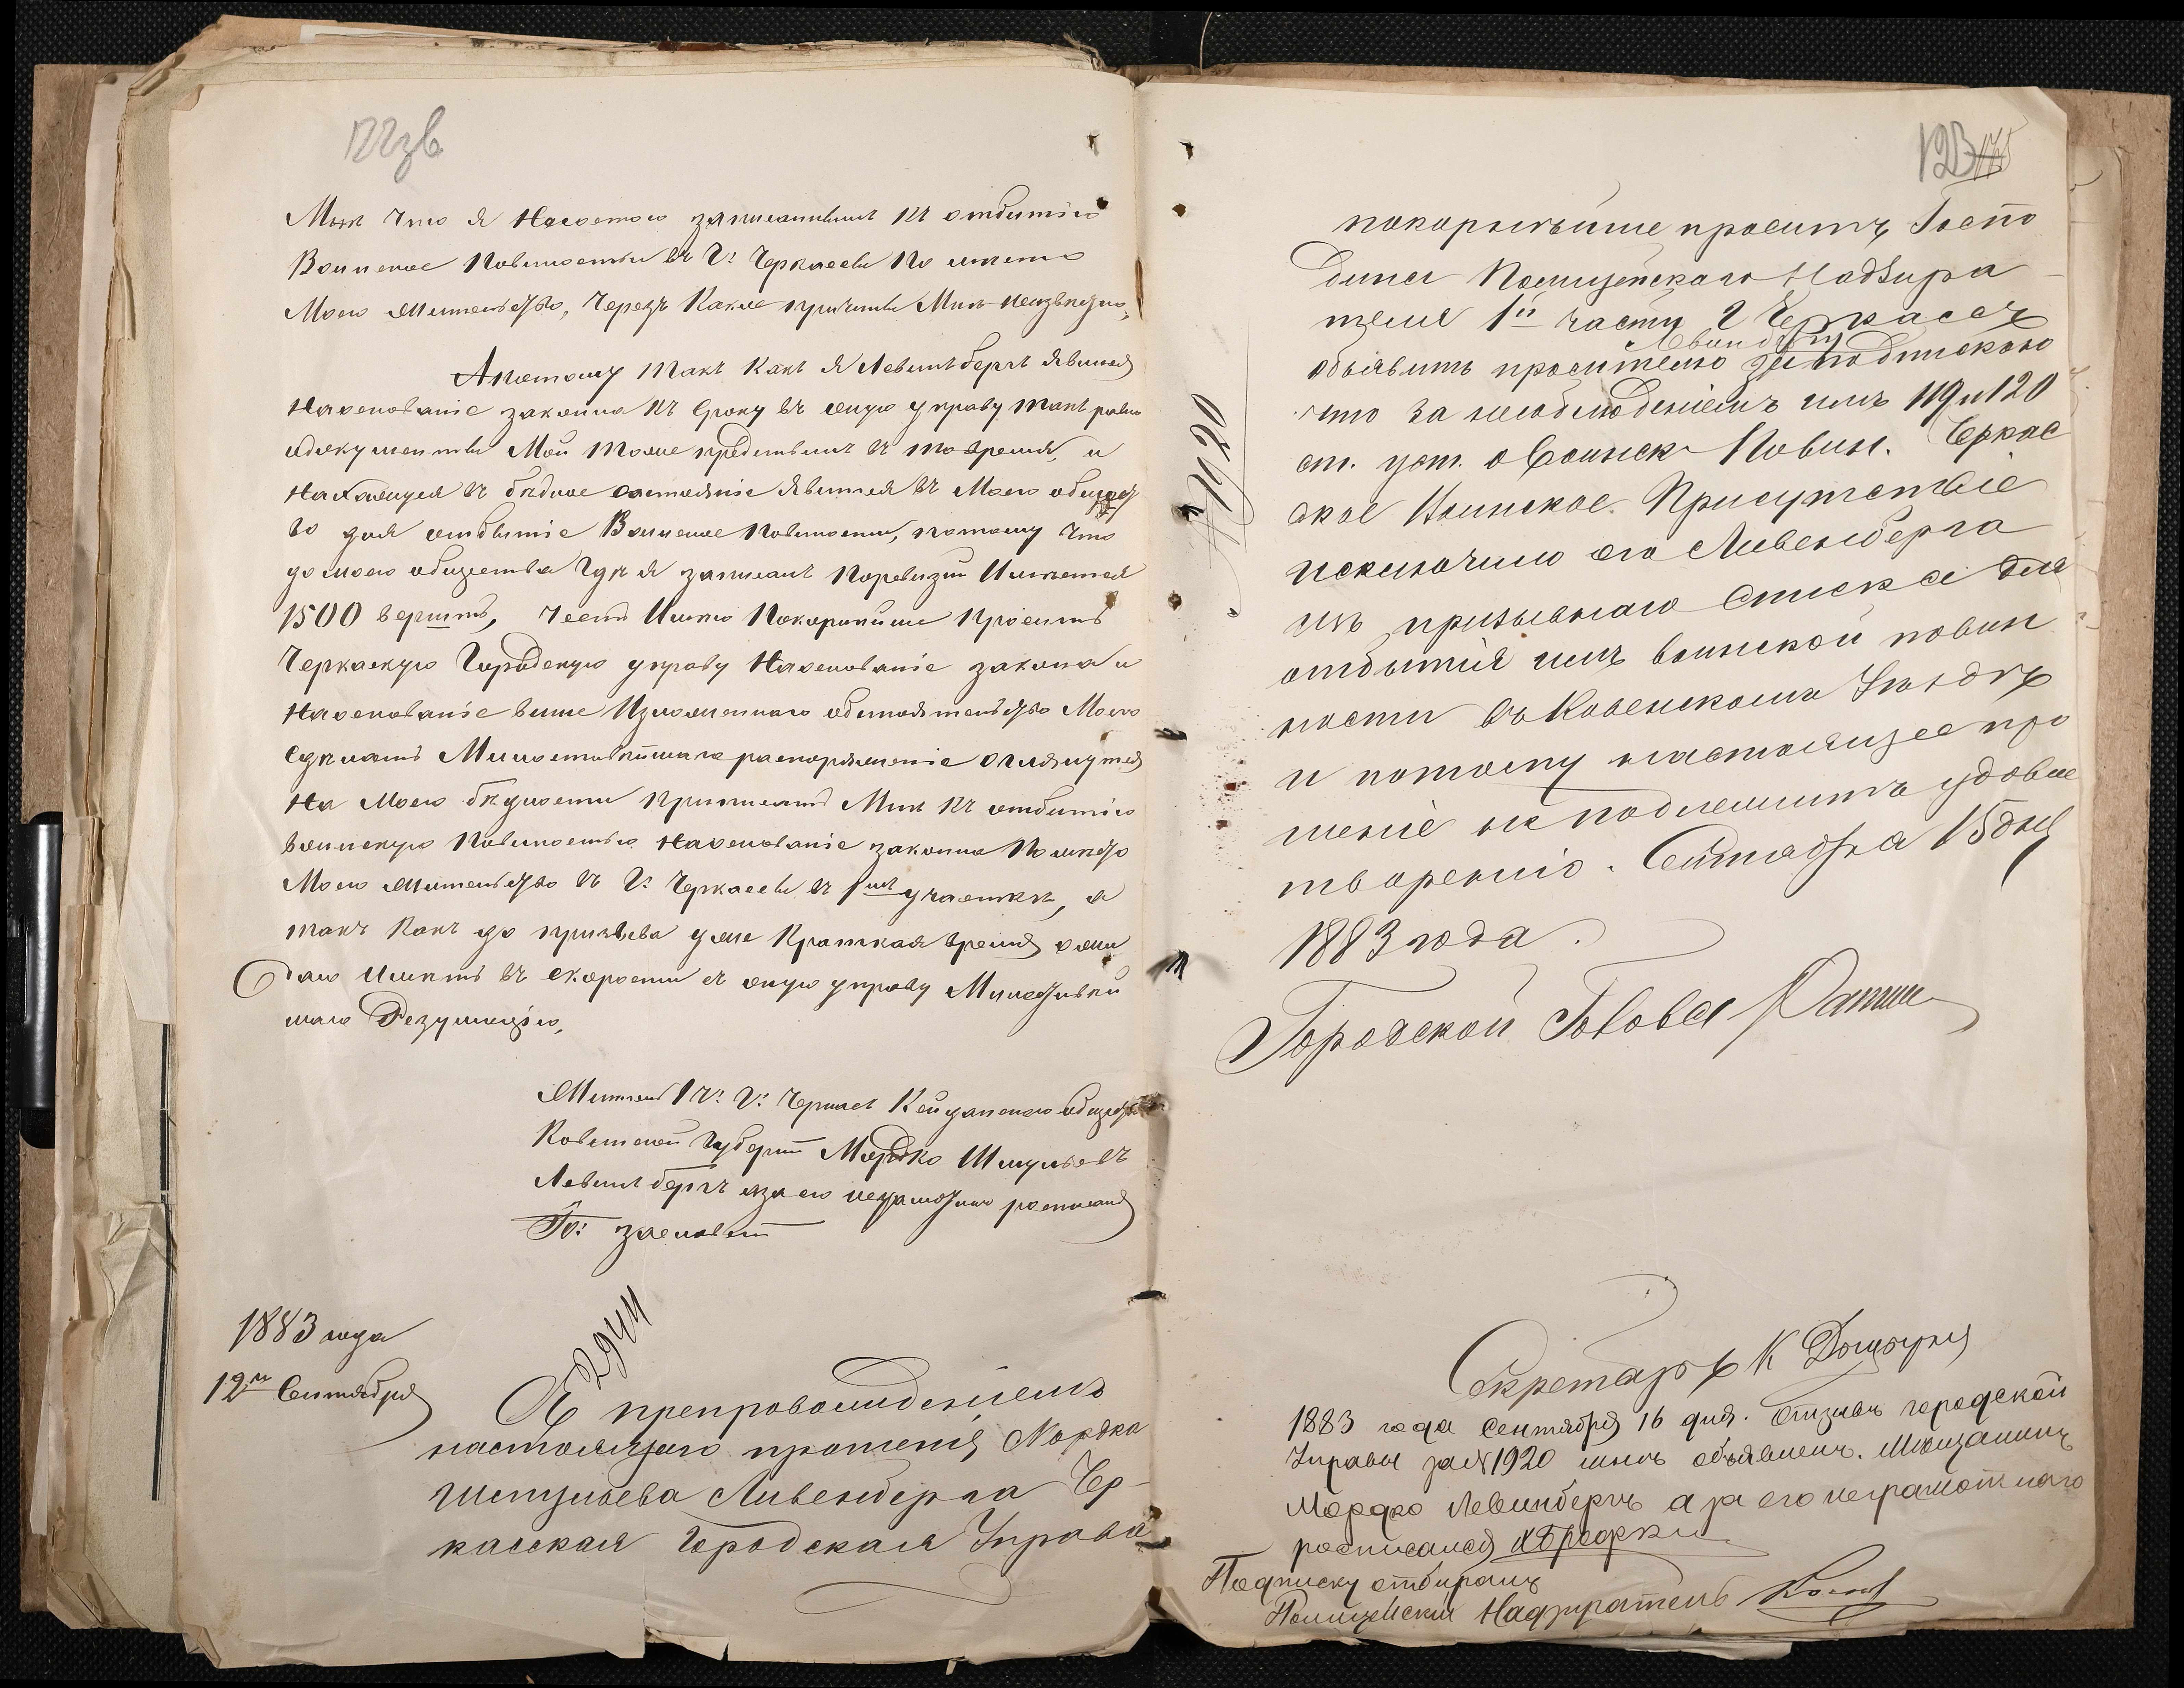 122зв
Мнѣ что я
къ отбытію
Воинское Повинности въ Г: Черкассы По
Моего Жительство, Черезъ Какіе причины Мнѣ неизвѣсно,
Апотому Такъ Какъ Я Левинъбергъ явился
Наоснованіе закона къ сроку въ оную управу такъ равно
идокументы Мои Тоже въ то время, и
въ бѣдное состояніе явится въ Моего общес
во для отбытіе Воинское Повинности, потому что
до моего общества Гдѣ я записанъ Поревизіи Имѣется
1500 верштъ, Честь Имѣю Покорнѣйше Просить
Черкаскую Городскую управу Наоснованіе закона и
Наоснованіе выше Изложеннаго обстоятельство Моего
Сдѣлать Милостивѣйшаго распоряженіе оглянутся
На Моего бѣдности Приписать Мнѣ къ отбытію
воинскую Повинностью Наоснованіе закона По мѣсто
Моего Жительство въ Г: Черкассы въ 1мъ участкѣ, а
такъ Какъ до призыва уже Краткая время ожи
даю Имѣть въ скорости съ оную управу Милостивѣй
шаго Резулюцію,
Житель 1 Ч: Г: Черкасъ Кейданского общество
Ковенской Губерніи Мордко Шмульевъ
Левинъбергъ азаего неграмотного росписался
1883 года
12го Сентября
2944
Съ препровожденіемъ
настоящаго прошенія Мордка
Шмульева Ливенберга Чер-
касская Городская Управа
123 175
№ 1920
покорнѣйше проситъ Госпо
дина Полицейскаго Надзира-
теля 1й части Г Черкассъ
объявить просителю заподпискою
что за несоблюденіемъ имъ 119 и 120
ст. уст. о Воинск. Повин. Черкас
ское Воинское Присутствіе
исключило его Ливенберга
изъ призывнаго списка для
отбытія имъ воинской повин
ности въ Ковенскомъ Уѣздѣ
и потому настоящее про
шеніе не подлежитъ удовле
творенію. Сентября 15 дня
1883 года.
Городской Голова
Секретарь К
1883 года Сентября 16 дня. Отзывъ городской
Управы за № 1920 мнѣ объявленъ. Мѣщанинъ
Мордко Левинбергъ а за его неграмотнаго
росписался
Подписку отбиралъ
Полицейскій Надзиратель